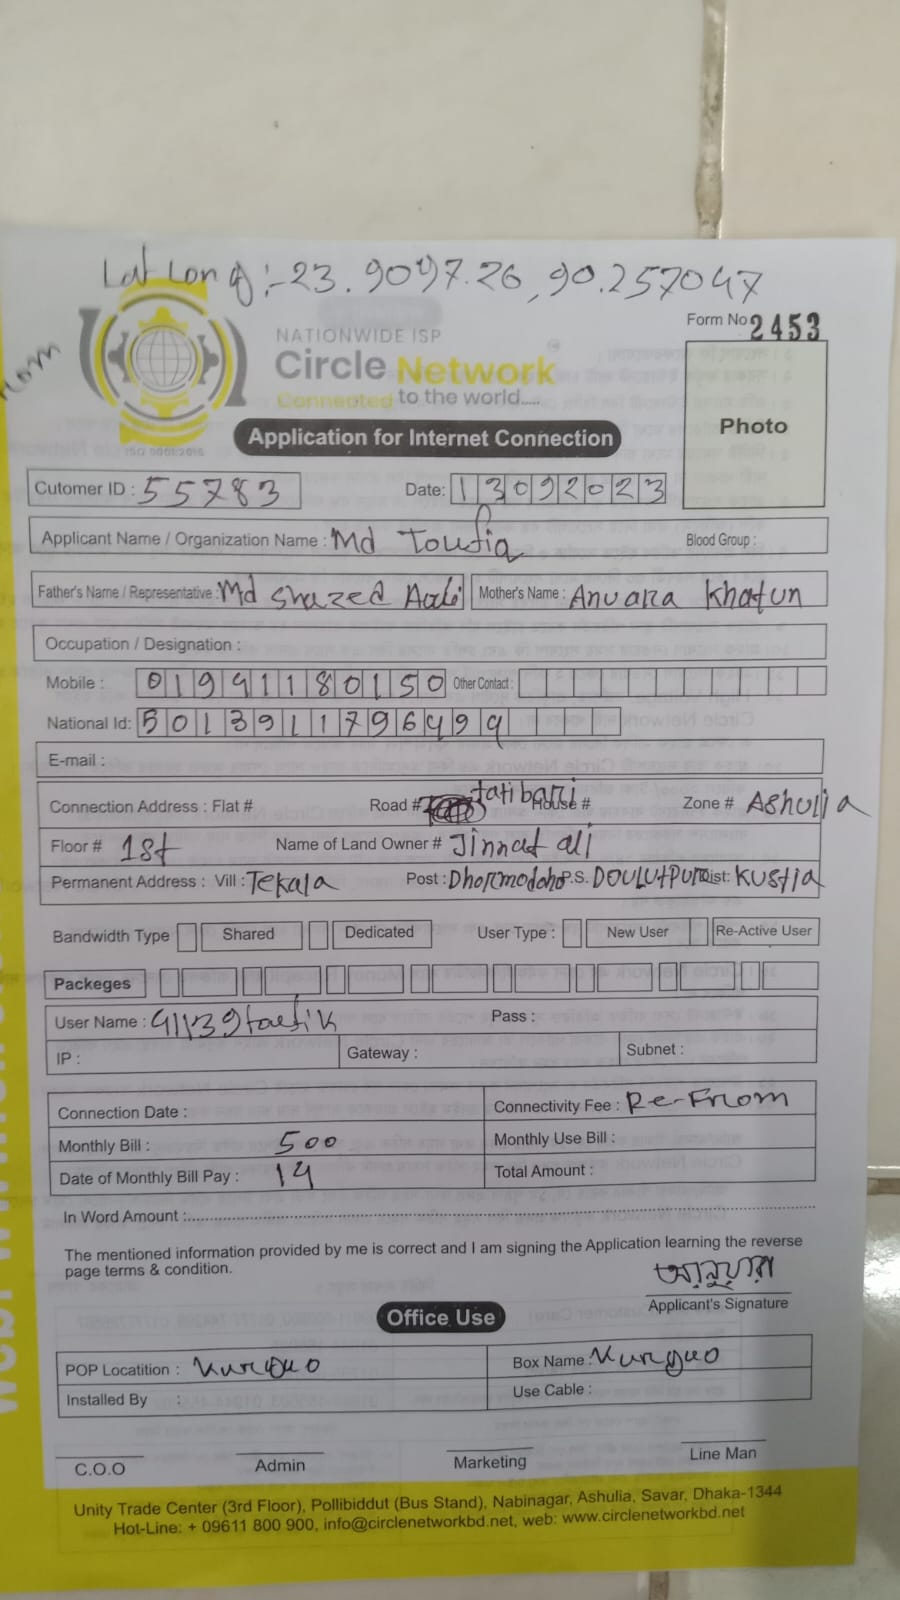 Lat Long:-23.9097.26,90.257047
Form No 2453
NATIONWIDE ISP
Circle Network
Connected to the world.....
ISO 9001:2015
Photo
Application for Internet Connection
Cutomer ID : 55783 Date: 13092023
Applicant Name / Organization Name : Md Toufiq Blood Group :
Father's Name / Representative : Md Shazed Aali Mother's Name : Anuara Khatun
Occupation / Designation :
Mobile : 01991180150 Other Contact :
National Id: 5013911796499
E-mail :
Connection Address : Flat # Road # tatibari House # Zone # Ashulia
Floor # 1st Name of Land Owner # Jinnat ali
Permanent Address : Vill : Tekala Post : Dhormodoho P.S. DOULUtPUR Dist: KUStia
Bandwidth Type Shared Dedicated User Type : New User Re-Active User
Packeges
User Name : Pass :
IP : Gateway : Subnet :
Connection Date : Connectivity Fee : Re-From
Monthly Bill : 500 Monthly Use Bill :
Date of Monthly Bill Pay : 14 Total Amount :
In Word Amount :
The mentioned information provided by me is correct and I am signing the Application learning the reverse
page terms & condition.
আনুয়ারা
Applicant's Signature
Office Use
POP Locatition : Box Name :
Installed By : Use Cable :
C.O.O Admin Marketing Line Man
Unity Trade Center (3rd Floor), Pollibiddut (Bus Stand), Nabinagar, Ashulia, Savar, Dhaka-1344
Hot-Line: + 09611 800 900, info@circlenetworkbd.net, web: www.circlenetworkbd.net